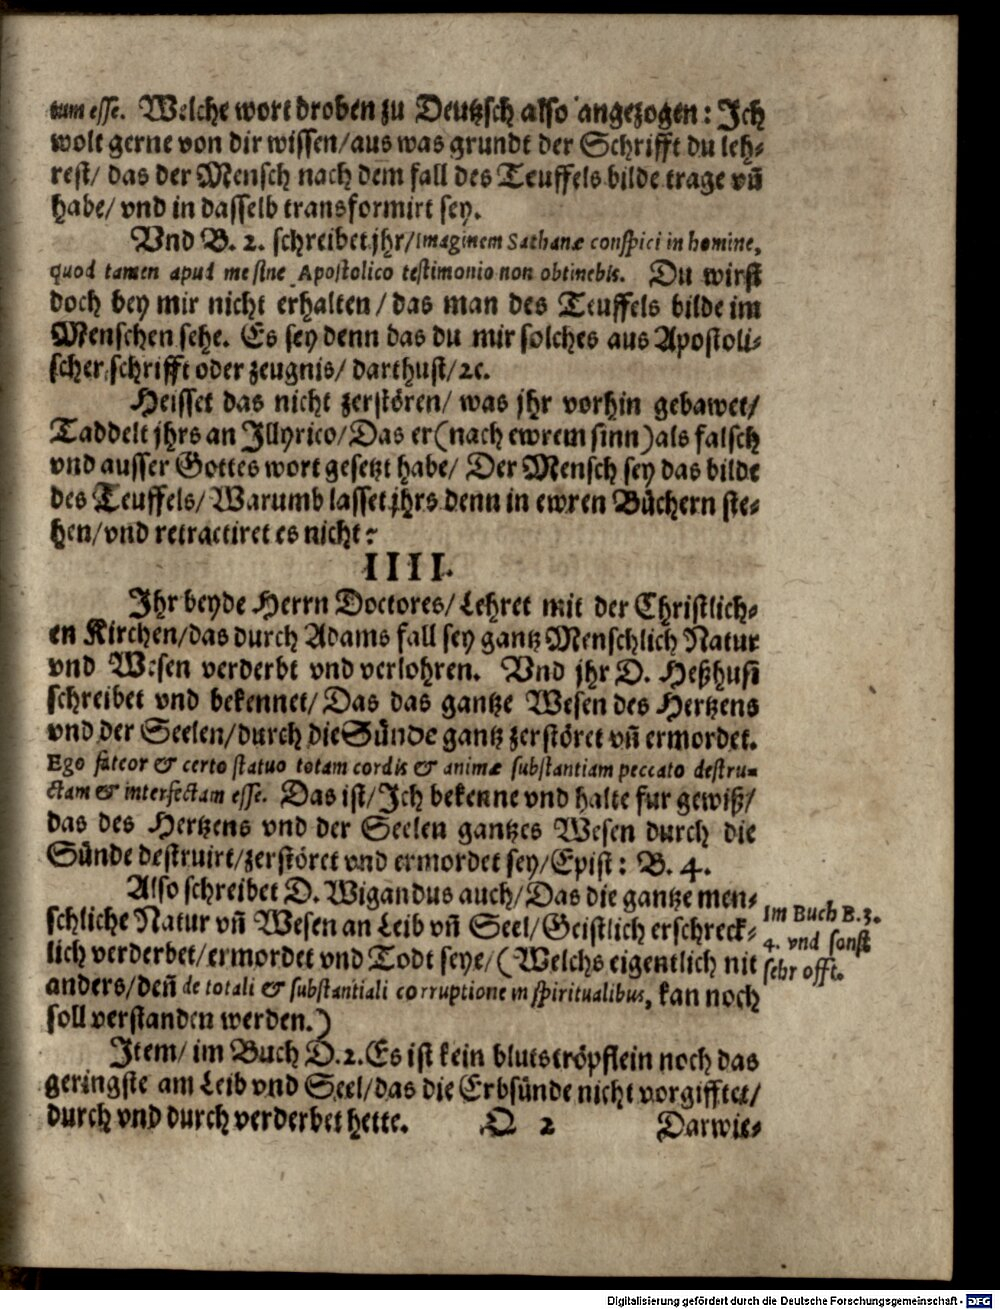 tum esse. Welche wort droben zu Deutzsch also angezogen: Jch
wolt gerne von dir wissen/aus was grundt der Schrifft du leh-
rest/ das der Mensch nach dem fall des Teuffels bilde trage vñ
habe/ vnd in dasselb transformirt sey.
Vnd B. 2. schreibet jhr/Imaginem Sathanæ conspici in homine,
quod tamen apud me sine Apostolico testimonio non obtinebis. Du wirst
doch bey mir nicht erhalten/das man des Teuffels bilde im
Menschen sehe. Es sey denn das du mir solches aus Apostoli-
scher schrifft oder zeugnis/ darthust/ꝛc.
Heisset das nicht zerstören/ was jhr vorhin gebawet/
Taddelt jhrs an Jllyrico/Das er(nach ewrem sinn)als falsch
vnd ausser Gottes wort gesetzt habe/ Der Mensch sey das bilde
des Teuffels/Warumb lasset jhrs denn in ewren Büchern ste-
hen/vnd retractiret es nicht?
IIII.
Jhr beyde Herrn Doctores/Lehret mit der Christlich-
en Kirchen/das durch Adams fall sey gantz Menschlich Natur
vnd Wesen verderbt vnd verlohren. Vnd jhr D. Heßhusi
schreibet vnd bekennet/Das das gantze Wesen des Hertzens
vnd der Seelen/durch die Sünde gantz zerstöret vñ ermordet.
Ego fateor & certo statuo totam cordis & animæ substantiam peccato destru-
ctam & interfectam esse. Das ist/Jch bekenne vnd halte fur gewiß/
das des Hertzens vnd der Seelen gantzes Wesen durch die
Sünde destruirt/zerstöret vnd ermordet sey/Epist: B. 4.
Also schreibet D. Wigandus auch/Das die gantze men-
schliche Natur vñ Wesen an Leib vñ Seel/Geistlich erschreck-
lich verderbet/ermordet vnd Todt seye/(Welchs eigentlich nit
anders/deñ de totali & substantiali corruptione in spiritualibus, kan noch
soll verstanden werden.)
Im Buch B. 3.
4. vnd sonst
sehr offt.
Jtem/ im Buch D. 2. Es ist kein blutströpflein noch das
geringste am Leib vnd Seel/das die Erbsünde nicht vorgifftet/
durch vnd durch verderbet hette.
Q 2 Darwie-
Digitalisierung gefördert durch die Deutsche Forschungsgemeinschaft - DFG